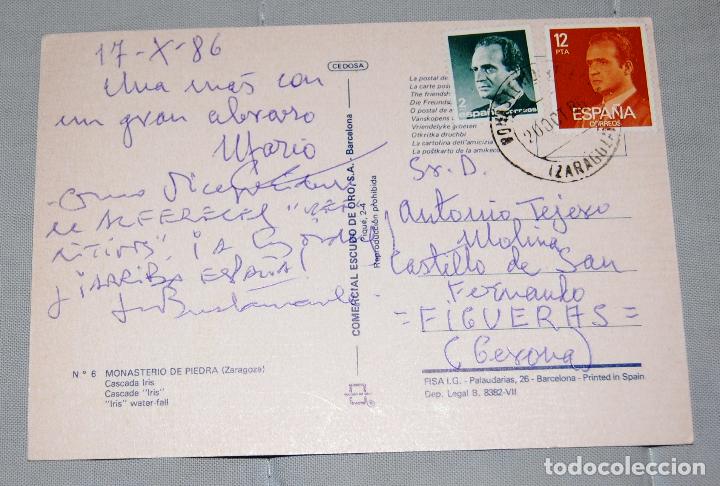 17-X-86
Una más con
un gran abrazo
Mario
- Como
de ALFERECES
¡ A
y ¡ARRIBA ESPAÑA!
Bustamante
Nº 6 MONASTERIO DE PIEDRA (Zaragoza)
Cascada Iris
Cascade "Iris"
"Iris" water-fall
CEDOSA
COMERCIAL ESCUDO DE ORO, S.A. - Barcelona
Piqué, 2-4
Reproducción prohibida
La postal de
La carte pos
The friendsh
Die Freunds
O postal de a
Vanskopens
Vriendelyke groeten
Otkritka druchbi
La cartolina dell'amicizia
La poŝtkarto de la amikec
2
españa correos
12
PTA
ESPAÑA
CORREOS
(ZARAGOZA)
Sr. D.
Antonio Tejero
Molina
Castillo de San
Fernando
= FIGUERAS =
(Gerona)
FISA I.G. - Palaudarias, 26 - Barcelona - Printed in Spain
Dep. Legal B. 8382-VII
todocoleccion